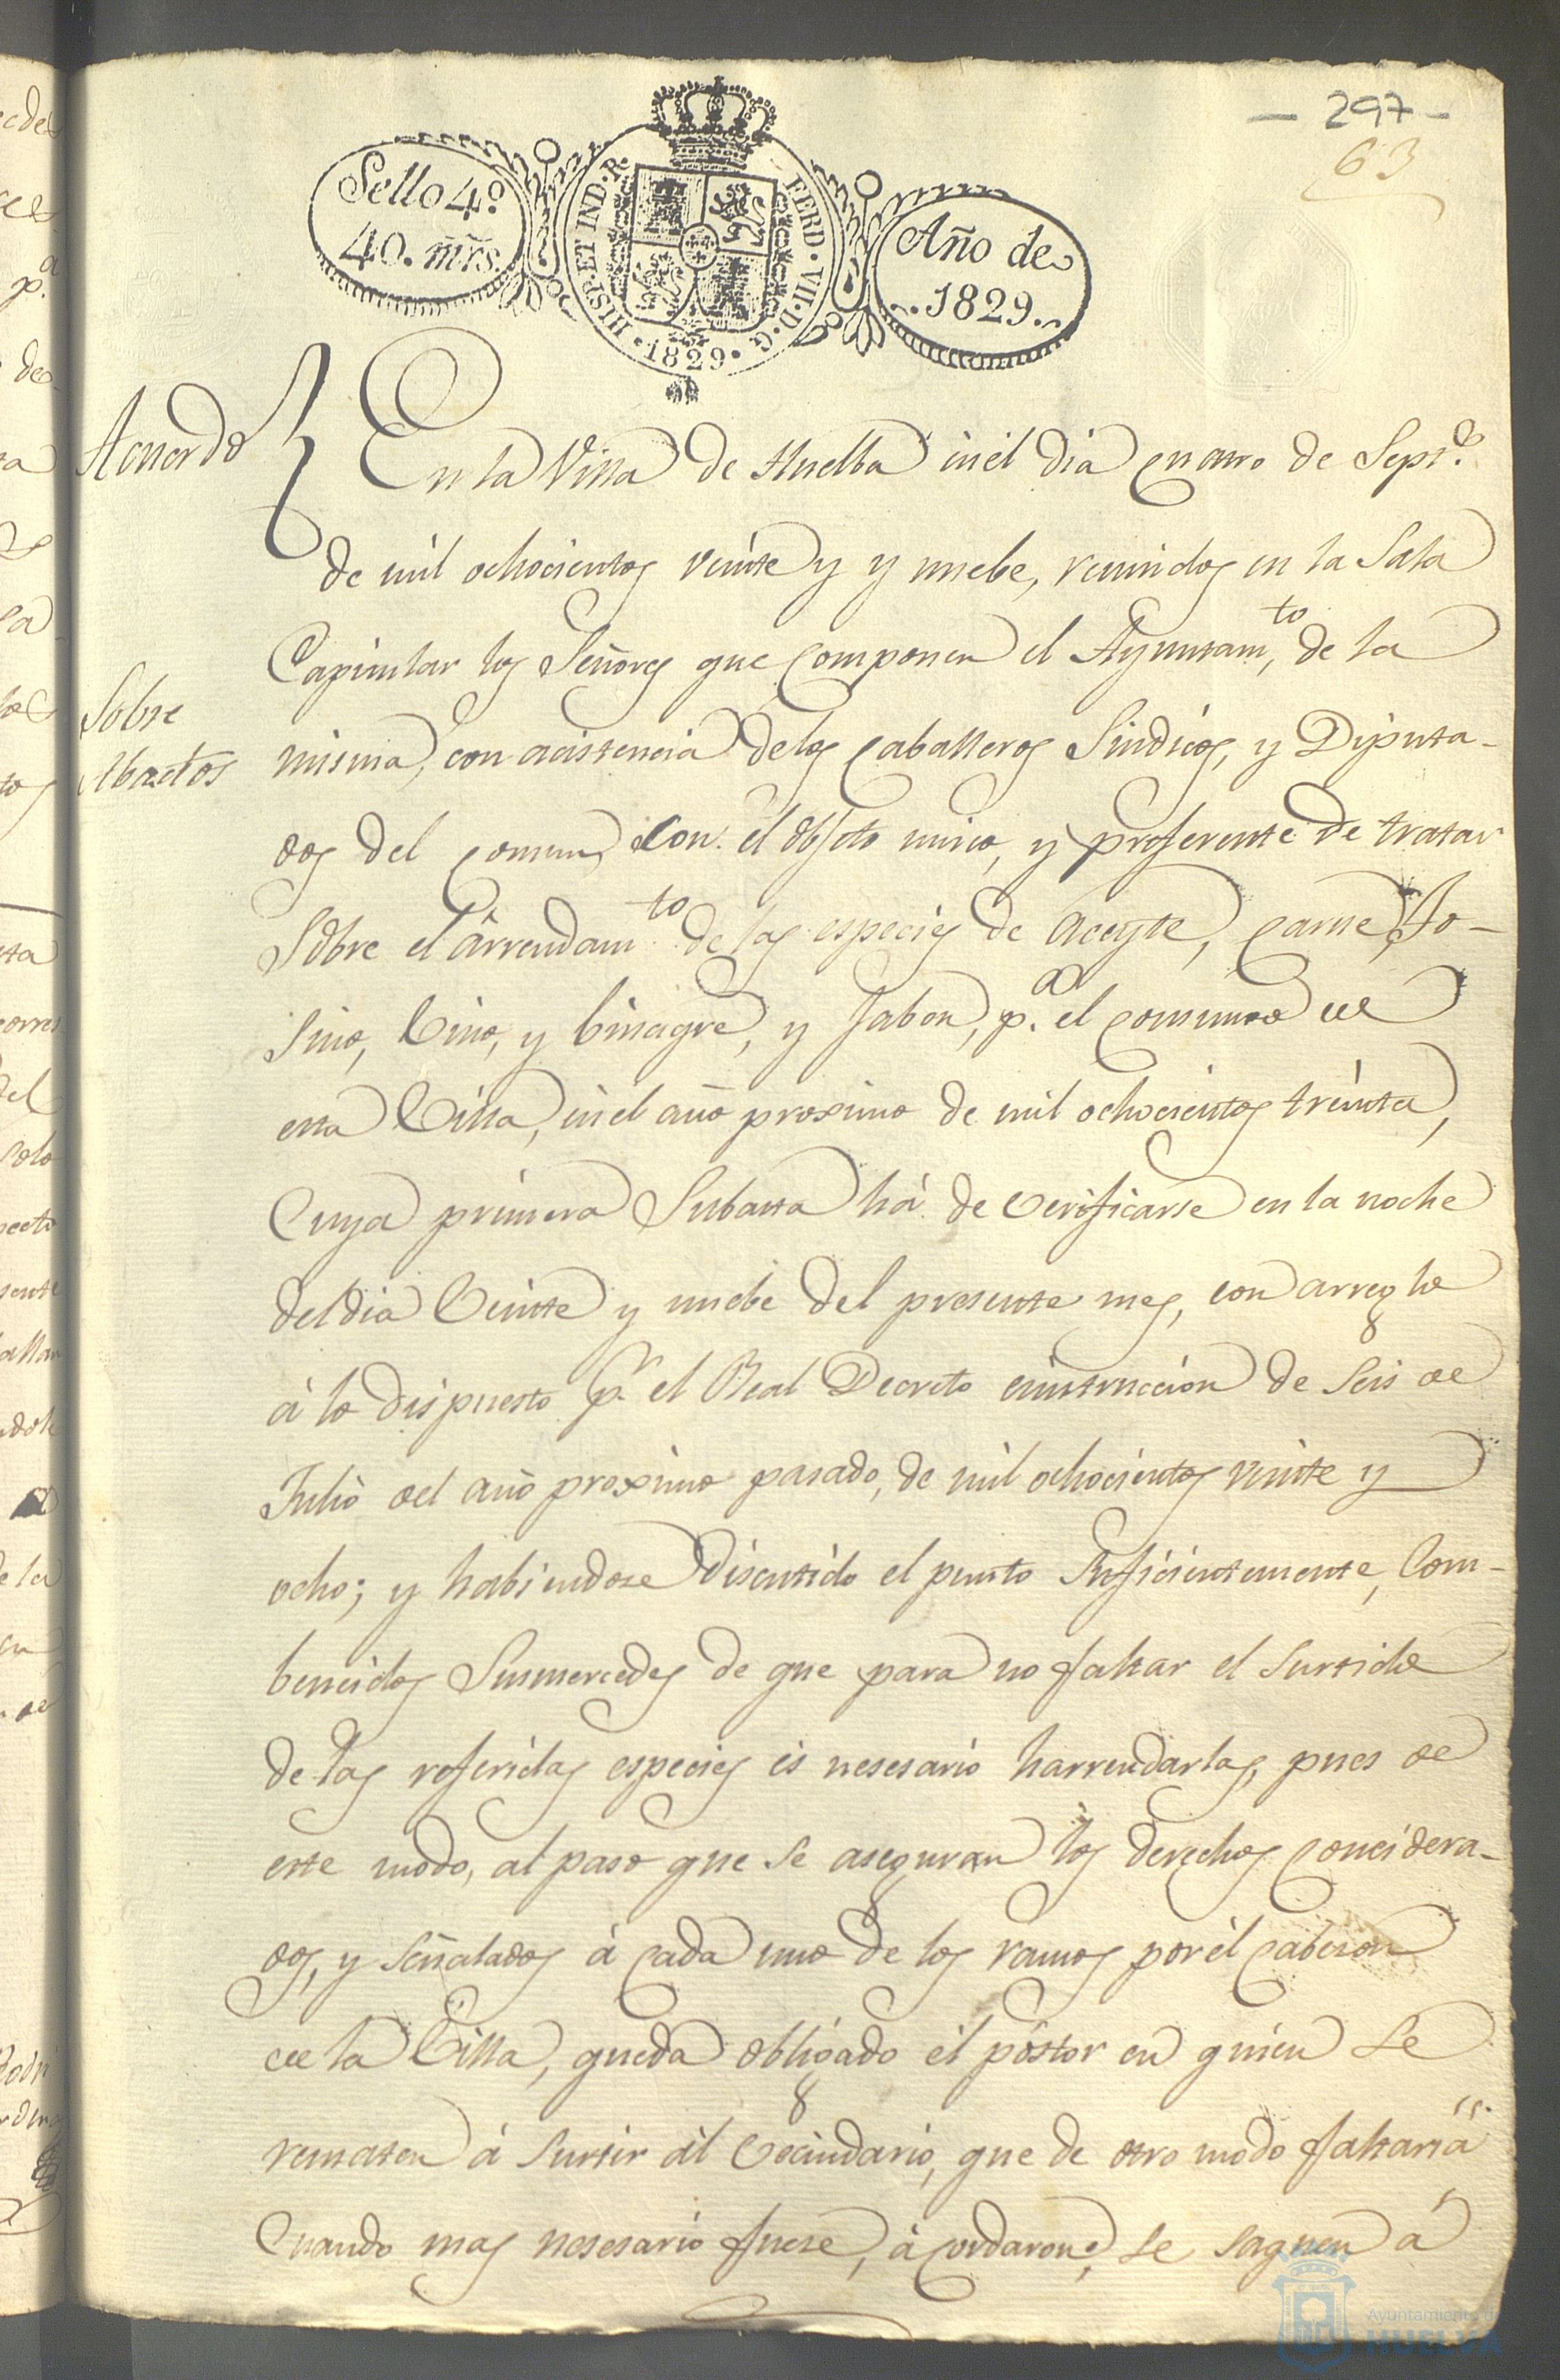 - 297 -
63
Sello 4º
40. mrs.
HISP. ET IND. R.
FERD. VII. D. G.
1829
Año de
1829.
Acuerdo
En la Villa de Huelba en el dia cuatro de Sepre.
de mil ochocientos veinte y y nuebe, reunidos en la Sala
Capitular los Señores que componen el Ayuntamto, de la
Sobre
Abastos
misma, con acistencia de los Caballeros Sindicos, y Diputa-
dos del comun, con el objeto unico, y preferente de tratar
Sobre el arrendamto de las especies de Aceyte, Carne, To-
sino, Vino, y binagre, y Jabon, pa. el comun de
esta Villa, en el año proximo de mil ochocientos treinta,
Cuya primera Subasta há de verificarse en la noche
del dia Veinte y nuebe del presente mes, con arreglo
á lo dispuesto pr. el Real Decreto einstruccion de seis de
Julio del año proximo pasado, de mil ochocientos veinte y
ocho; y habiendose discutido el punto suficientemente, Com-
bencidos Susmercedes de que para no faltar el surtido
de las referidas especies es nesesario harrendarlas, pues de
este modo, al paso que se aseguran los derechos concidera-
dos, y señalados á cada uno de los ramos por él Cabeson
de la Villa, queda obligado él póstor en quien se
rematen á surtir ál Vecindario, que de otro modo faltaria
Cuando mas nesesario fuese, ácordaron, se saquen á
Ayuntamiento de
HUELVA